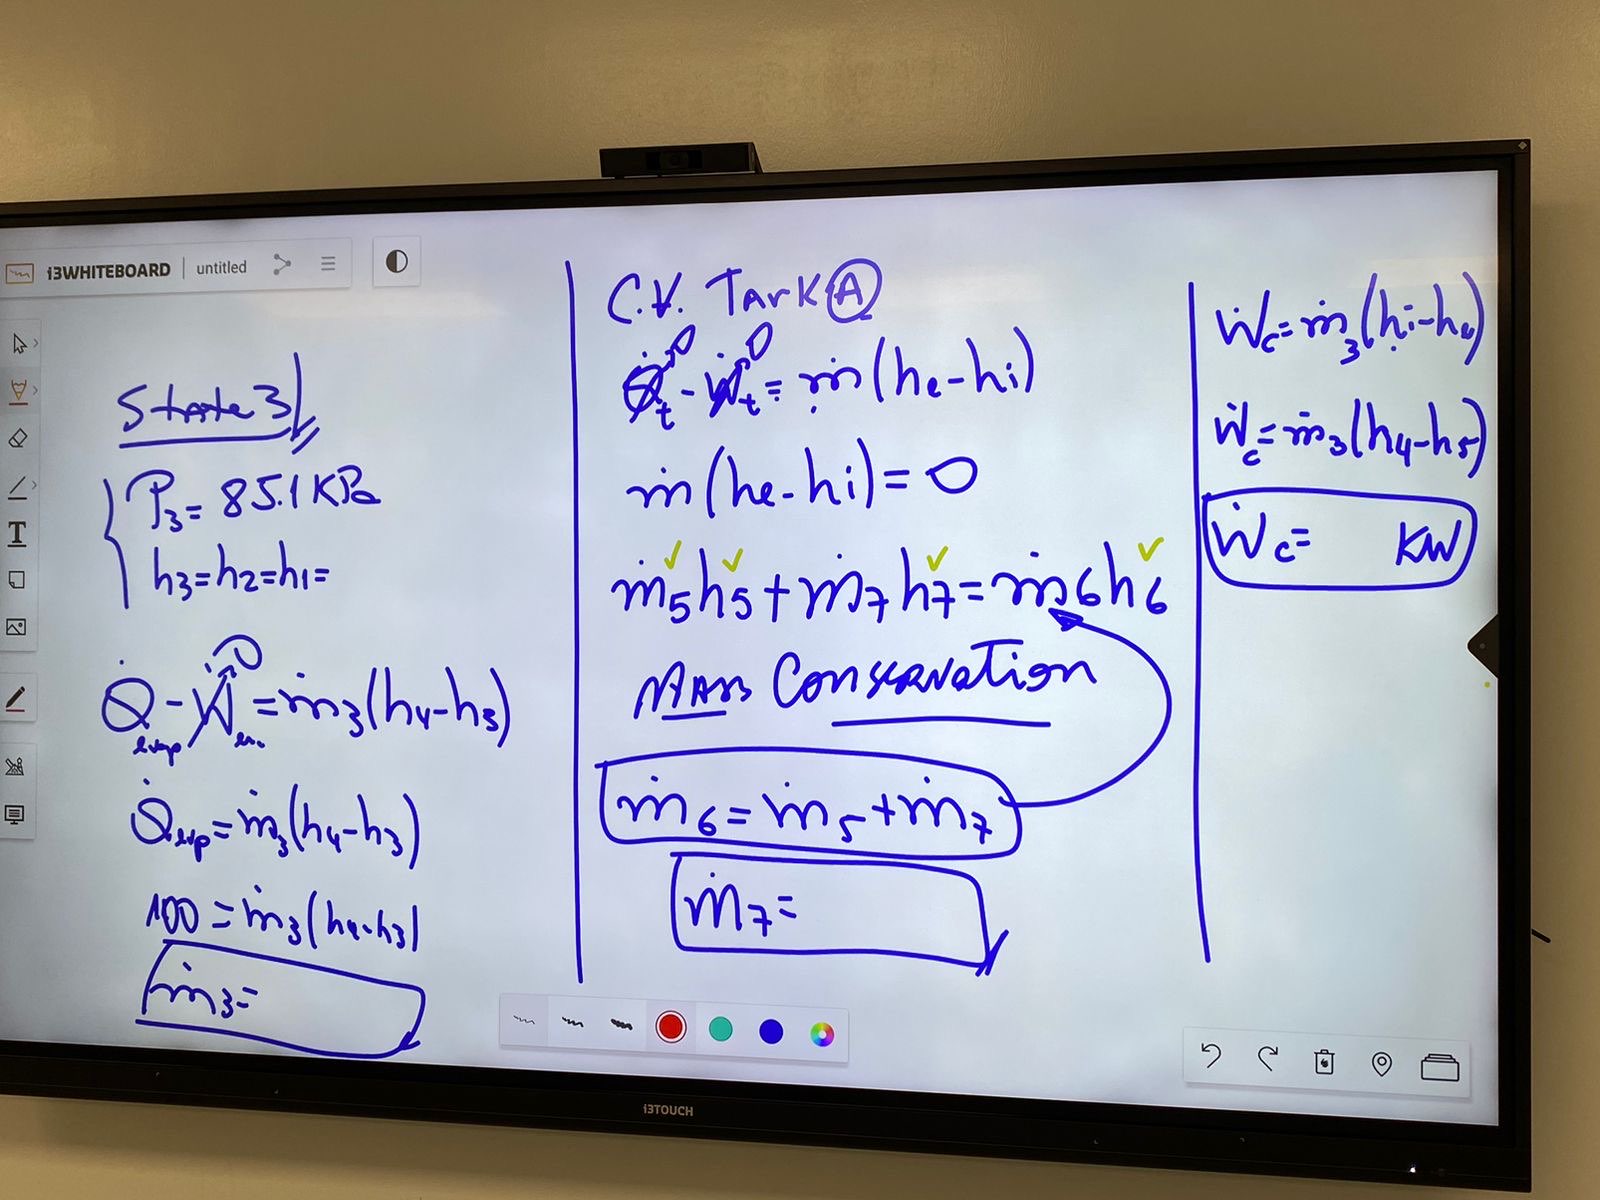 i3WHITEBOARD | untitled
State 3
P3 = 85.1 KPa
h3=h2=h1=
Q̇evap - Ẇev.→0 = ṁ3(h4-h3)
Q̇evp = ṁ3(h4-h3)
100 = ṁ3(h4-h3)
ṁ3=
C.V. Tank Ⓐ
Q̇t→0 - Ẇt→0 = ṁ(he-hi)
ṁ(he-hi) = 0
ṁ5h5 + ṁ7h7 = ṁ6h6
Mass Conservation
ṁ6 = ṁ5 + ṁ7
ṁ7 =
Ẇc = ṁ3(hi-he)
Ẇc = ṁ3(h4-h5)
Ẇc = KW
T
i3TOUCH